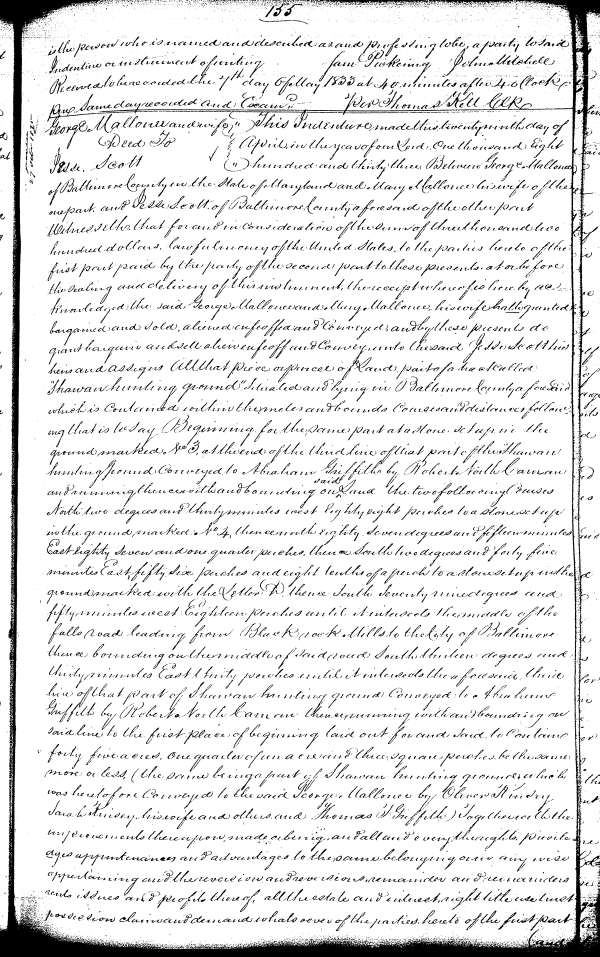 155
is the person who is named and described as and professing to be, a party to said
Indenture or instrument of writing Sam Pickering John Mitchell
Received to be recorded the 7th day of May 1833 at 40 minutes after 4 oClock
P.M. Same day recorded and Exam'd Per Thomas Kell Clk
George Mallonee and wife This Indenture made this twenty ninth day of
Deed To April in the year of our Lord One thousand Eight
Jesse Scott hundred and thirty three Between George Mallonee
of Baltimore County in the State of Maryland and Mary Mallonee his wife of the
one part and Jesse Scott of Baltimore County aforesaid of the other part
Witnesseth that for and in consideration of the sum of three thousand two
hundred dollars, lawful money of the United States, to the parties hereto of the
first part paid by the party of the second part to these presents at or before
the sealing and delivery of this instrument, the receipt whereof is hereby ac=
knowledged, the said George Mallonee and Mary Mallonee his wife hath granted
bargained and sold, aliened enfeoffed and Conveyed and by these presents do
grant bargain and sell alien enfeoff and Convey unto the said Jesse Scott his
heirs and assigns All that piece or parcel of Land, part of a tract Called
Shawan hunting ground situated and lying in Baltimore County aforesaid
which is Contained within the metes and bounds Courses and distances follow
ing that is to say Beginning for the same part at a stone set up in the
ground marked No 3, at the end of the third line of that part of the Shawan
hunting ground Conveyed to Abraham Griffith by Robert North Carnan
and running thence with and bounding on said Land the two following Courses
North two degrees and thirty minutes west Eighty eight perches to a stone set up
in the ground marked No 4 thence north eighty seven degrees and fifteen minutes
East Eighty seven and one quarter perches, thence South two degrees and forty five
minutes East, fifty six perches and eight tenths of a perch to a stone set up in the
ground marked with the Letter D. thence South Seventy nine degrees and
fifty minutes west Eighteen perches until it intersects the middle of the
falls road leading from Black rock Mills to the City of Baltimore
thence bounding on the middle of said road South thirteen degrees and
thirty minutes East thirty perches until it intersects the aforesaid third
line of that part of Shawan hunting ground Conveyed to Abraham
Griffith by Robert North Carnan thence running with and bounding on
said line to the first place of beginning laid out for and said to Contain
forty five acres, one quarter of an acre and three square perches be the same
more or less, (the same being a part of Shawan hunting ground which
was heretofore Conveyed to the said George Mallonee by Oliver
Sarah his wife and others and Thomas Griffith) Together with the
improvements thereupon, made or being, and all and every the rights, privile
ges appurtenances and advantages to the same belonging or in any wise
appertaining and the reversion and reversions, remainder and remainders
rents issues and profits thereof, all the estate and interest, right title use trust
possession claim and demand whatsoever of the parties hereto of the first part
(and